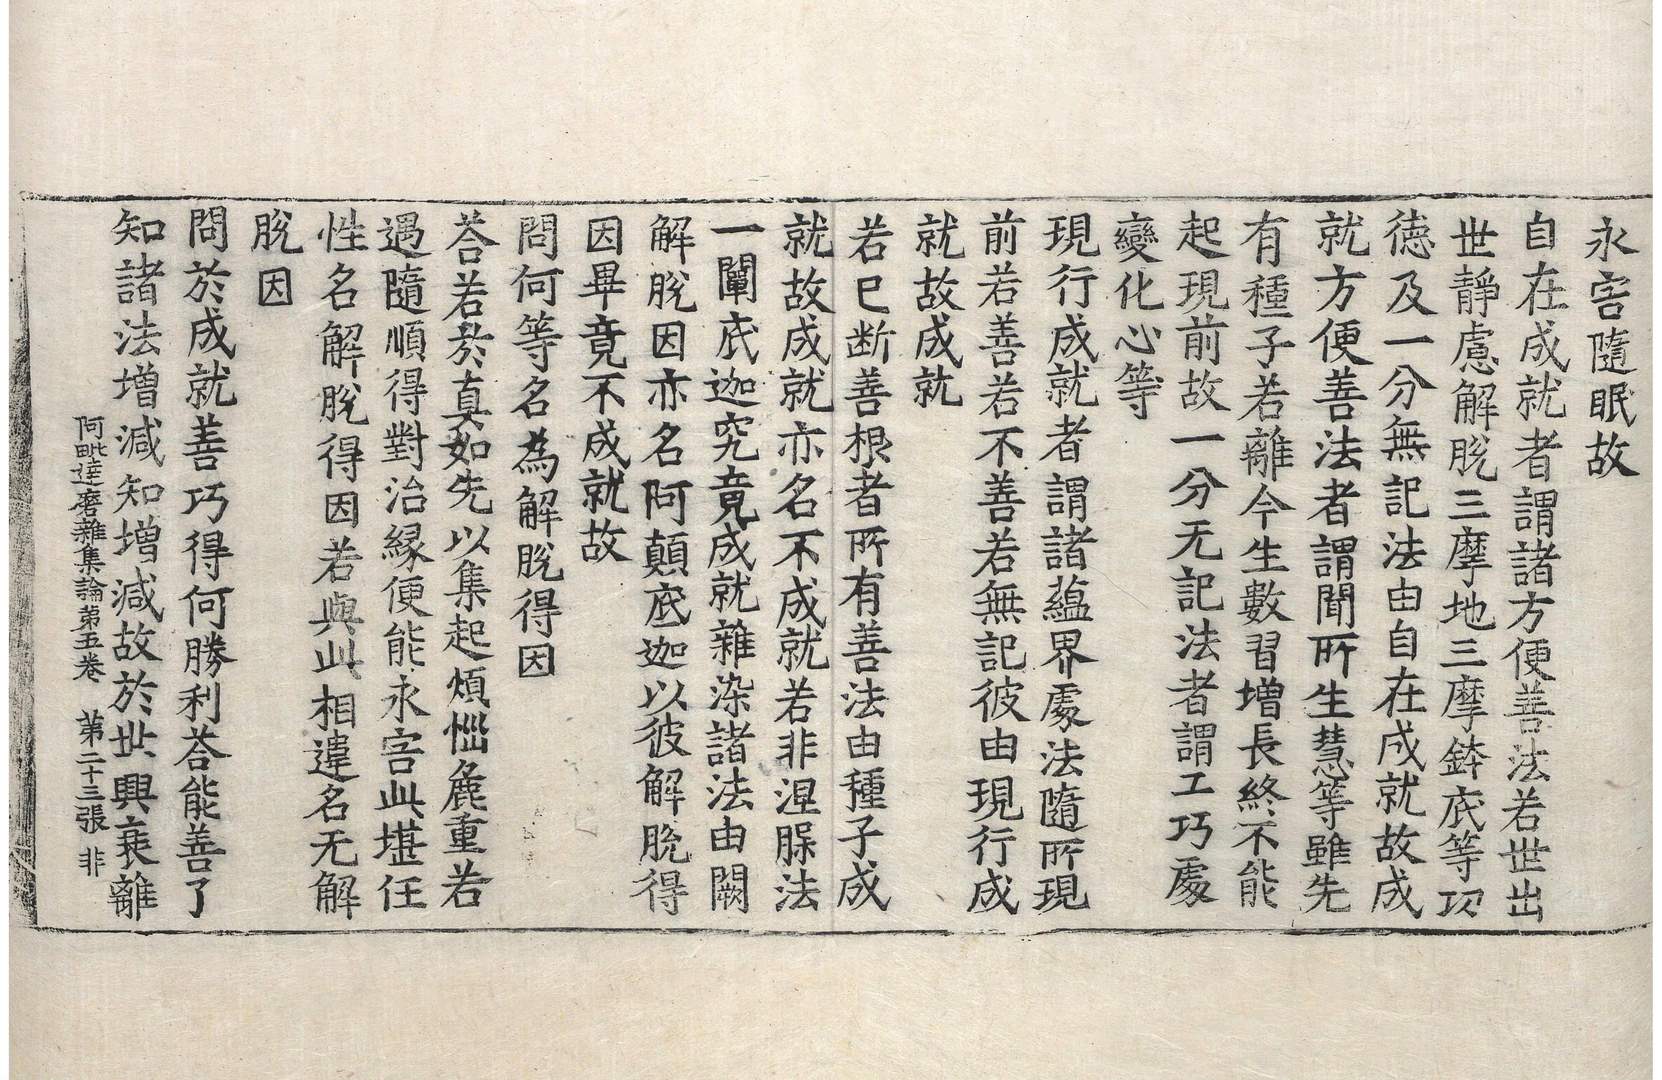 永害隨眠故
自在成就者謂諸方便善法若世出
世靜慮解脫三摩地三摩鉢底等功
德及一分無記法由自在成就故成
就方便善法者謂聞所生慧等雖先
有種子若離今生數習增長終不能
起現前故一分无記法者謂工巧處
變化心等
現行成就者謂諸蘊界處法隨所現
前若善若不善若無記彼由現行成
就故成就
若已断善根者所有善法由種子成
就故成就亦名不成就若非涅槃法
一闡底迦究竟成就雜染諸法由闕
解脫因亦名阿顛底迦以彼解脫得
因畢竟不成就故
問何等名為解脫得因
荅若於真如先以集起煩惱麁重若
遇隨順得對治緣便能永害此堪任
性名解脫得因若與此相違名无解
脫因
問於成就善巧得何勝利荅能善了
知諸法增減知增減故於世興衰離
阿毗達磨雜集論第五卷　第二十三張　非